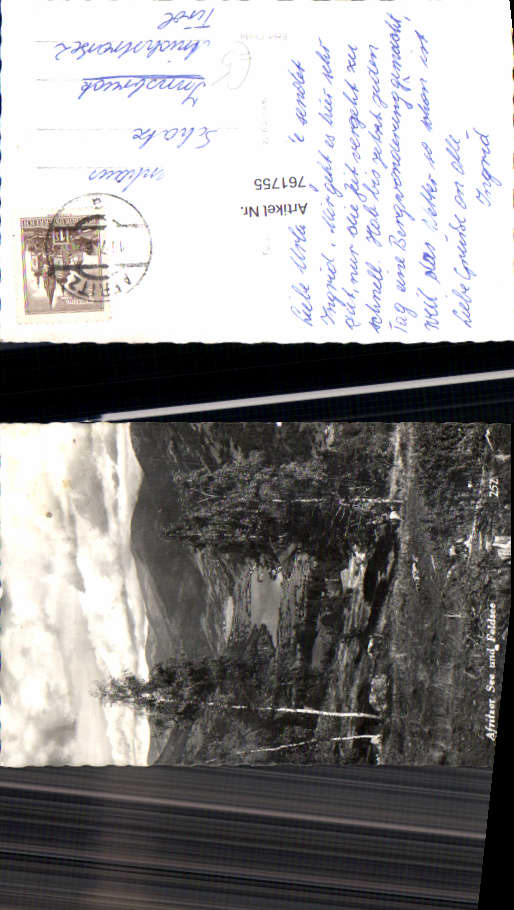 Liebe Urla
e sendet
Ingrid. Mir geht es hier sehr
gut, nur die Zeit vergeht zu
schnell. Hab bis jetzt jeden
Tag eine Bergwanderung gemacht,
weil das Wetter so schön ist
Liebe Grüße an alle
Ingrid
Schatz
Innsbruck
Tirol
Artikel Nr.
761755
AFRITZ
Afritzer See und Feldsee 252